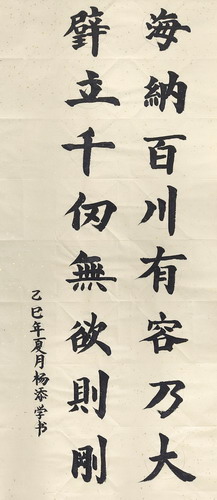 海納百川有容乃大
壁立千仞無欲則剛
乙巳年夏月杨添学书